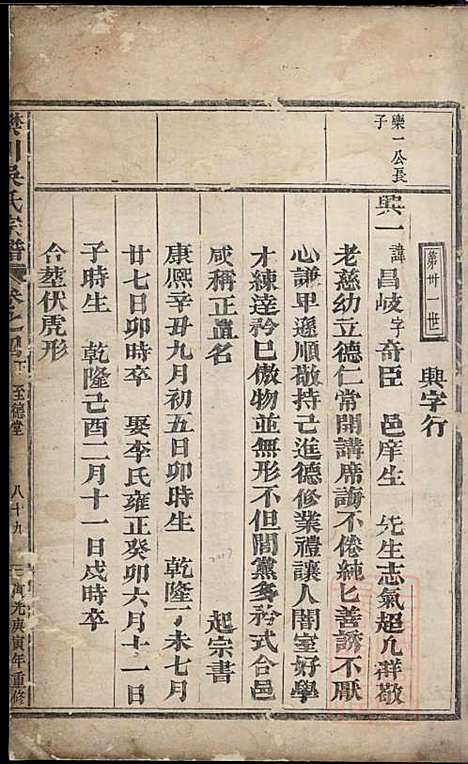 第卅一世
興字行
欒一公長
子
興一 諱昌岐字奇臣 邑庠生 先生志氣超凡群敬
老慈幼立德仁常開講席誨不倦純乜善誘不厭
心謙甲遜順敬持己進德修業禮讓人闇室好學
才練達矜巳傲物並無形不但閭黨多矜式合邑
咸稱正直名 起宗書
康熙辛丑九月初五日卯時生 乾隆丁未七月
廿七日卯時卒 娶李氏雍正癸卯六月十二日
子時生 乾隆己酉二月十一日戌時卒
合塟伏虎形
川吳氏宗譜 卷之 下 至德堂 八十九 道光庚寅年重修